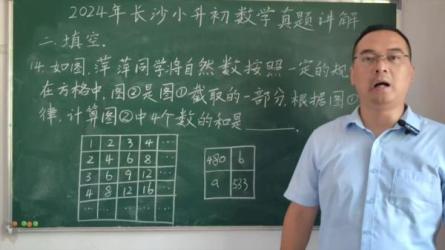 2024年长沙小升初数学真题讲解
二、填空.
14.如图,萍萍同学将自然数按照一定的规
在方格中,图②是图①截取的一部分,根据图①
律,计算图②中4个数的和是______.
1 2 3 4 …
2 4 6 8 …
3 6 9 12 …
4 8 12 16 …
… … … … …
480 b
a 533